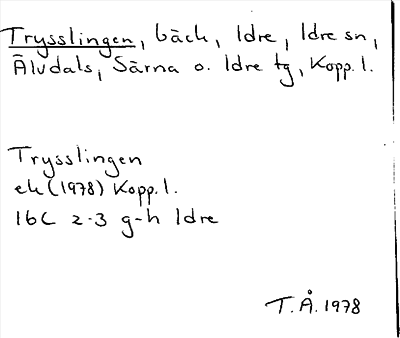 Trysslingen, bäck, Idre, Idre sn,
Älvdals, Särna o. Idre tg, Kopp. l.
Trysslingen
ek (1978) Kopp. l.
16C 2-3 g-h Idre
T.Å. 1978